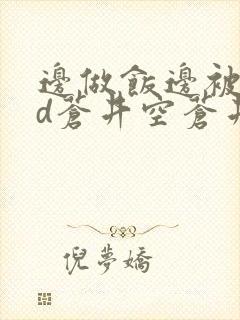 邊做飯邊被
d蒼井空蒼井
倪夢嬌